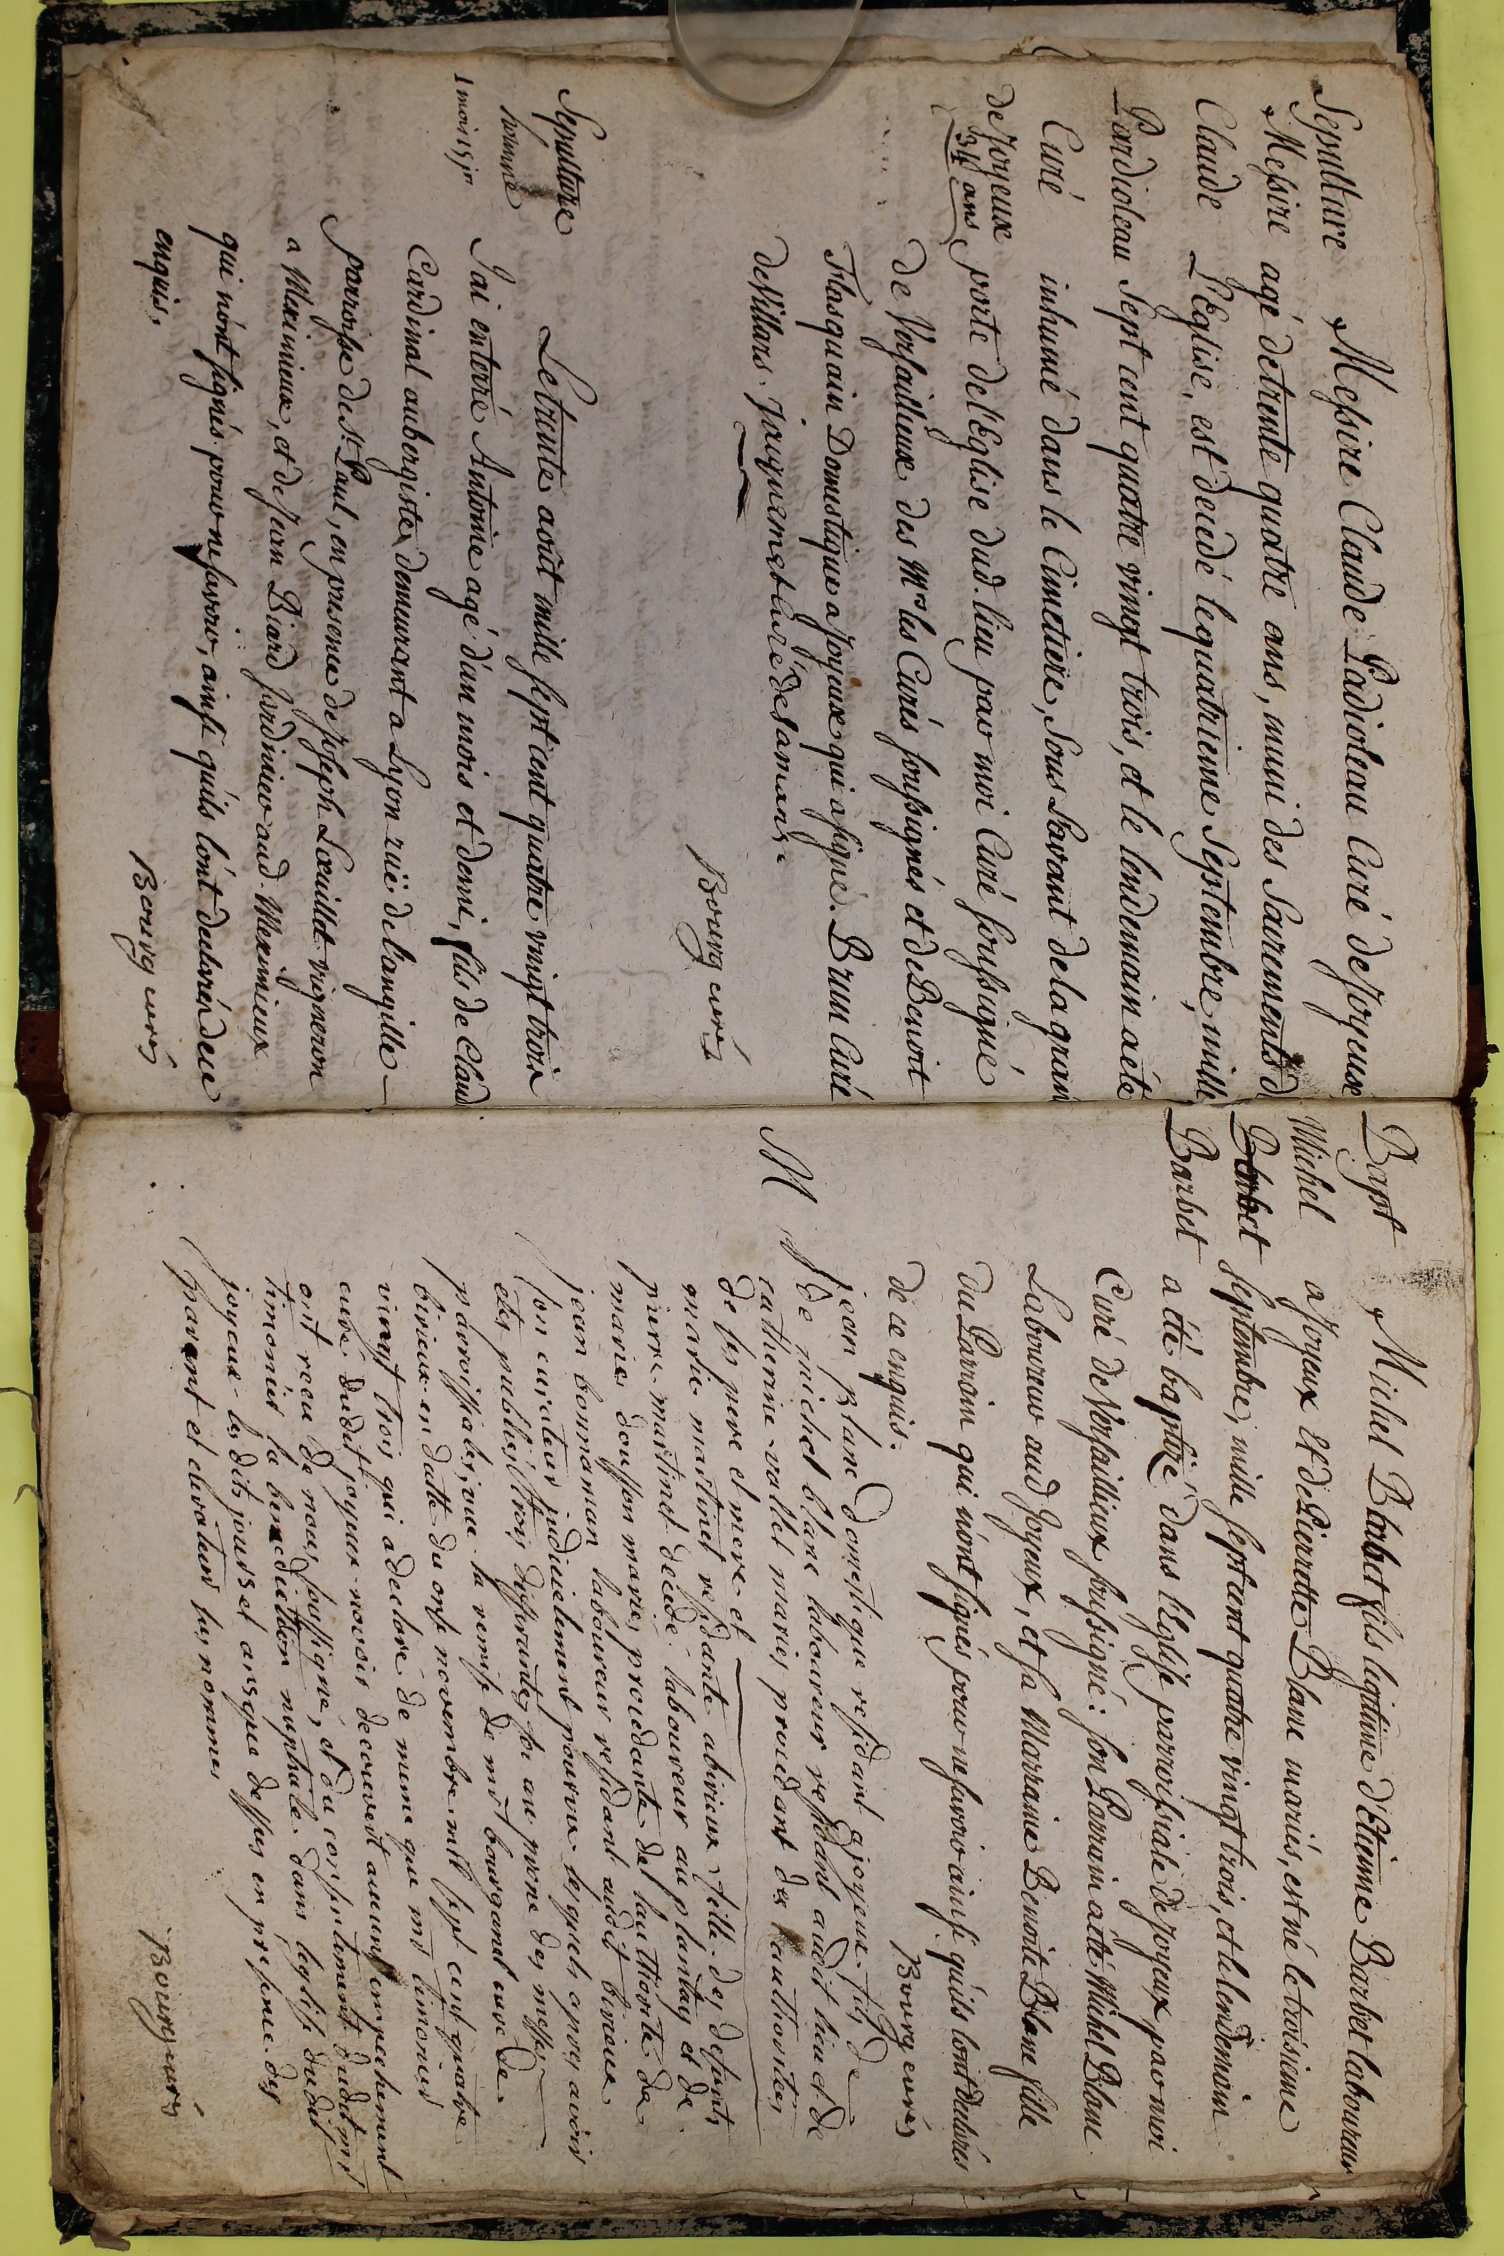 Sepulture
Messire
Claude
Pardioleau
Curé
de Joyeux
34 ans
Messire Claude Padioleau Curé de Joyeux
agé de trente quatre ans, muni des Sacrements d
L'Eglise, est decedé le quatrieme Septembre, mille
Sept cent quatre vingt trois, et le lendemain a été
inhumé dans le Cimetiere, Sous Lavant de la gran
porte de l'Eglise dud. lieu par moi Curé soussigné
de Versailleux des Mrs les Curés soussignés et de Benoit
Flasquain Domestique a Joyeux qui a signé. Brun Curé
de Villars. Jouquemet Curé de Samans.
Bourg curé
Sepulture
homme
1 mois 15 jrs
Le trente août mille sept cent quatre vingt trois
J'ai enterré Antoine agé d'un mois et demi, fils de Claud
Cardinal aubergiste demeurant a Lyon ruë de l'angille
parroisse de St. Paul, en presence de Joseph Lœuillet vigneron
a Meximieux, et de Jean Biard Jardinier aud. Meximieux
qui n'ont signés pour ne savoir, ainsi qu'ils l'ont declaré de ce
enquis.
Bourg curé
Bapt
Michel
Barbet
Barbet
Michel Barbet fils legitime d'Etienne Barbet laboureur
a Joyeux et de Pierrette Blanc mariés, est né le troisieme
Septembre, mille sept cent quatre vingt trois, et le lendemain
a été baptizé dans l'Eglise parroissiale de Joyeux par moi
Curé de Versailleux soussigné: son Parrain a été Michel Blanc
Laboureur aud Joyeux, et sa Marraine Benoite Blanc fille
du Parrain qui n'ont signés pour ne savoir ainsi qu'ils l'ont declarés
de ce enquis.
Bourg curé
M
jean blanc domestique residant a joyeux fils de
de michel blanc laboureur residant audit lieu et de
catherine vallet mariés procedant des authorites
de ses pere et mere et
marie martinet residante a birieux fille des defunts
pierre martinet decedé laboureur au plantay et de
marie dousson mariés procedante de l'authorite de
jean bonnaman laboureur residant audit birieux
son curateur judicielement pourvu lesquels apres avoir
etes publiés trois differentes fois au prone des messes
parroissiales, vue la remise de mr bourganel curé de
birieux en datte du onze novembre mil sept cent quatre
vingt trois qui a declaré de meme que mr timonier
curé dudit joyeux n'avoir decouvert aucuns empechement
ont recu de nous soussigné, et du consentement dudit mr
timonier la benediction nuptiale dans l'eglise dudit
joyeux les dits jours et an que dessus en presence des
parents et curateur sus nommés
Bourg curé